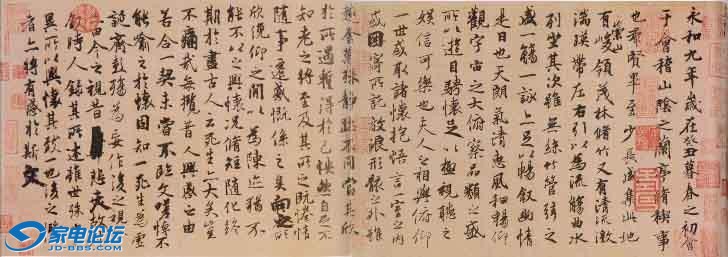 永和九年歲在癸丑暮春之初會
于會稽山陰之蘭亭脩稧事
也羣賢畢至少長咸集此地
有崇山峻領茂林脩竹又有清流激
湍暎帶左右引以為流觴曲水
列坐其次雖無絲竹管弦之
盛一觴一詠亦足以暢敘幽情
是日也天朗氣清惠風和暢仰
觀宇宙之大俯察品類之盛
所以遊目騁懷足以極視聽之
娛信可樂也夫人之相與俯仰
一世或取諸懷抱悟言一室之內
或因寄所託放浪形骸之外雖
趣舍萬殊靜躁不同當其欣
於所遇暫得於己快然自足不
知老之將至及其所之既惓情
隨事遷感慨係之矣向之所
欣俛仰之間以為陳迹猶不
能不以之興懷況脩短隨化終
期於盡古人云死生亦大矣豈
不痛哉每攬昔人興感之由
若合一契未嘗不臨文嗟悼不
能喻之於懷固知一死生為虛
誕齊彭殤為妄作後之視今
亦由今之視昔悲夫故列
敘時人錄其所述雖世殊事
異所以興懷其致一也後之攬
者亦將有感於斯文
家电论坛
JD-BBS.COM